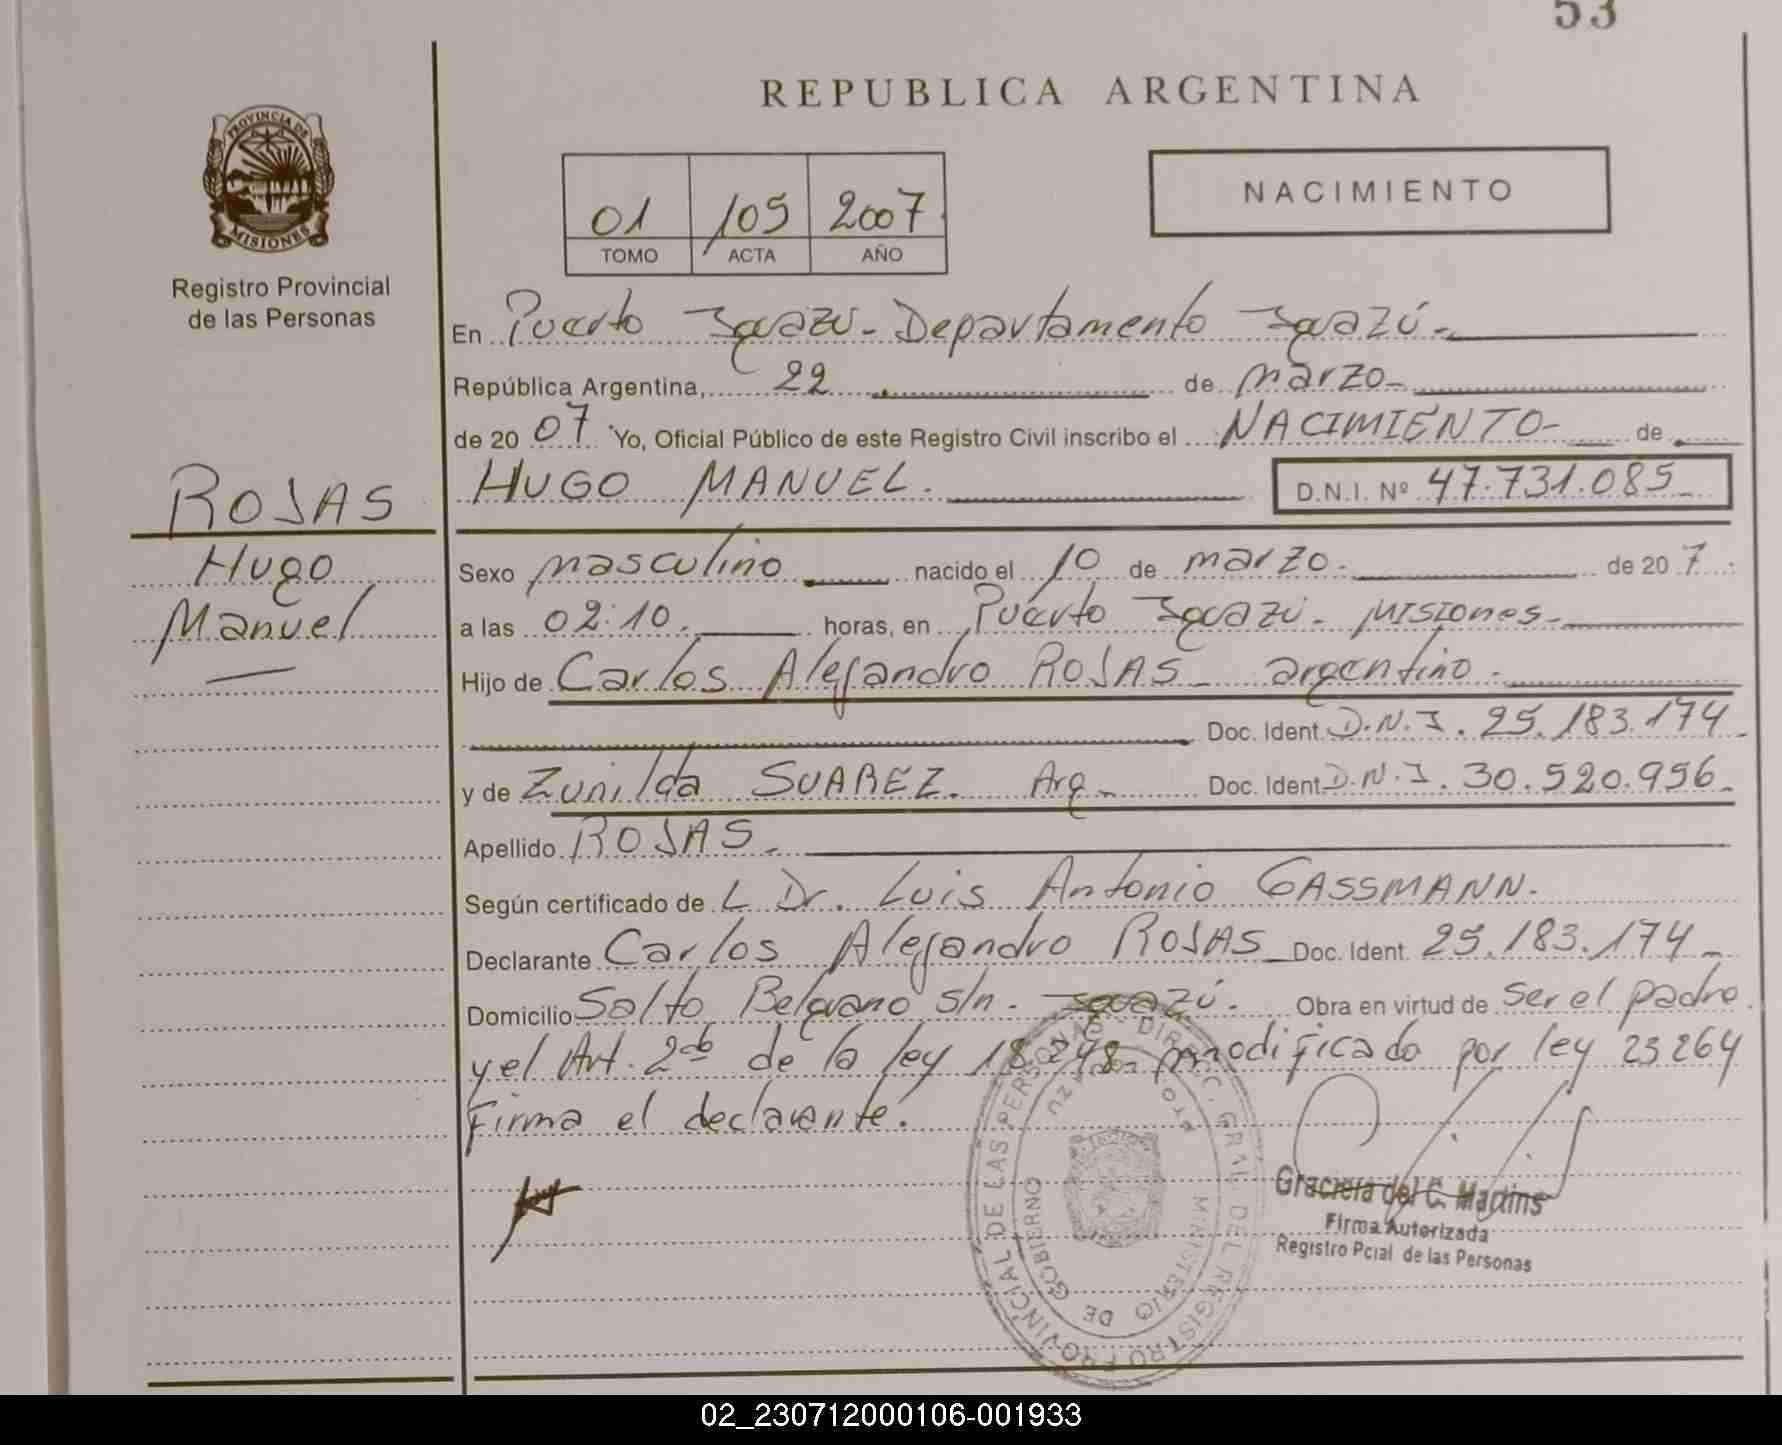 53
REPUBLICA ARGENTINA
PROVINCIA DE
MISIONES
Registro Provincial
de las Personas
01 105 2007
TOMO ACTA AÑO
NACIMIENTO
En Puerto Iguazú - Departamento Iguazú.-
República Argentina, 22 de marzo-
de 20 07 Yo, Oficial Público de este Registro Civil inscribo el NACIMIENTO- de
ROJAS
HUGO MANUEL. D.N.I. Nº 47.731.085-
Hugo
Manuel
Sexo masculino nacido el 10 de marzo.- de 20 7
a las 02:10. horas, en Puerto Iguazú - Misiones-
Hijo de Carlos Alejandro ROJAS - argentino.-
Doc. Ident. D.N.I. 25.183.174-
y de Zunilda SUAREZ. Arg- Doc. Ident. D.N.I. 30.520.956-
Apellido ROJAS-
Según certificado de L Dr. Luis Antonio GASSMANN.
Declarante Carlos Alejandro ROJAS - Doc. Ident. 25.183.174-
Domicilio Salto Belgrano s/n. - Iguazú. Obra en virtud de ser el padre.
y el Art. 2do de la ley 18.248- modificado por ley 23264
Firma el declarante.
Graciela del C. Martins
Firma Autorizada
Registro Pcial de las Personas
DIREC. GRAL DEL REGISTRO PROVINCIAL DE LAS PERSONAS
MINISTERIO DE GOBIERNO
02_230712000106-001933